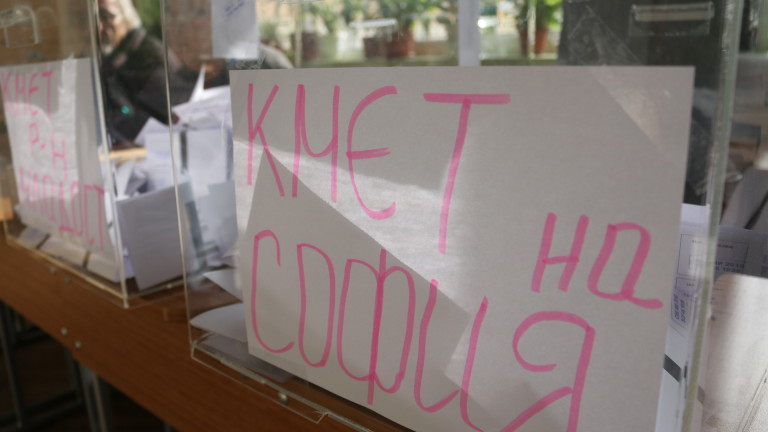 КМЕТ
Р-Н
МЛАДОСТ
КМЕТ
на
СОФИЯ